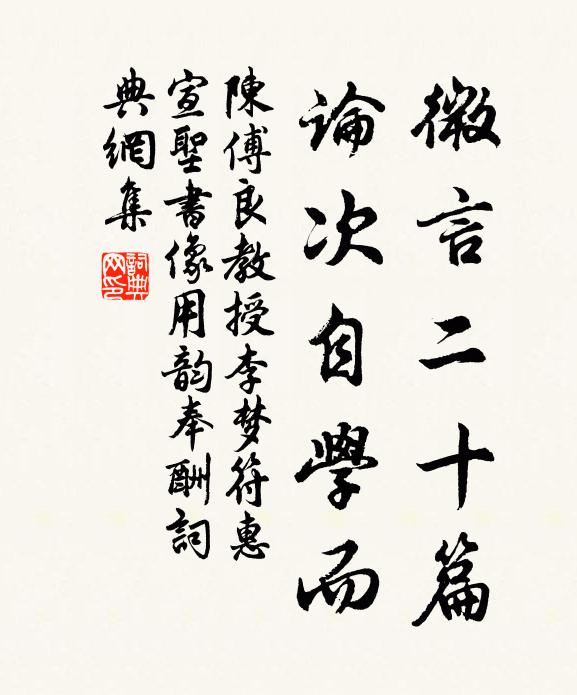 微言二十篇
論次自學而
陳傅良教授李梦符惠
宣聖書像用韵奉酬詞
典網集
詞典网印